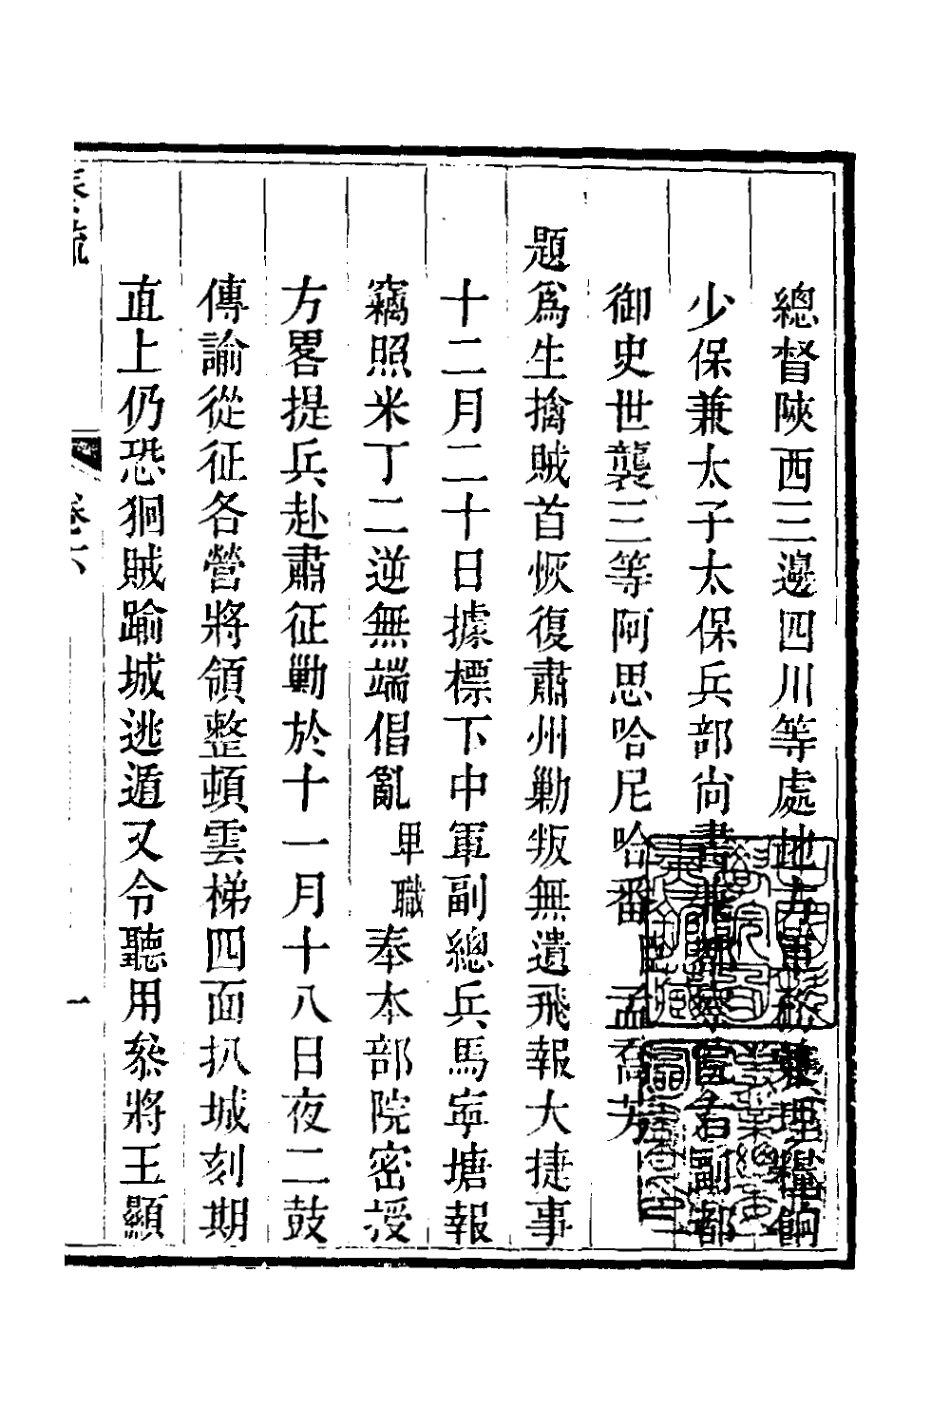 總督陝西三邊四川等處地方軍務兼理糧餉
少保兼太子太保兵部尚書兼都察院右副都
御史世襲三等阿思哈尼哈番臣孟喬芳
題爲生擒賊首恢復肅州勦叛無遺飛報大捷事
十二月二十日據標下中軍副總兵馬寧塘報
竊照米丁二逆無端倡亂卑職奉本部院密授
方畧提兵赴肅征勦於十一月十八日夜二鼓
傳諭從征各營將領整頓雲梯四面扒城刻期
直上仍恐狪賊踰城逃遁又令聽用叅將王顯
奏疏
卷六
一